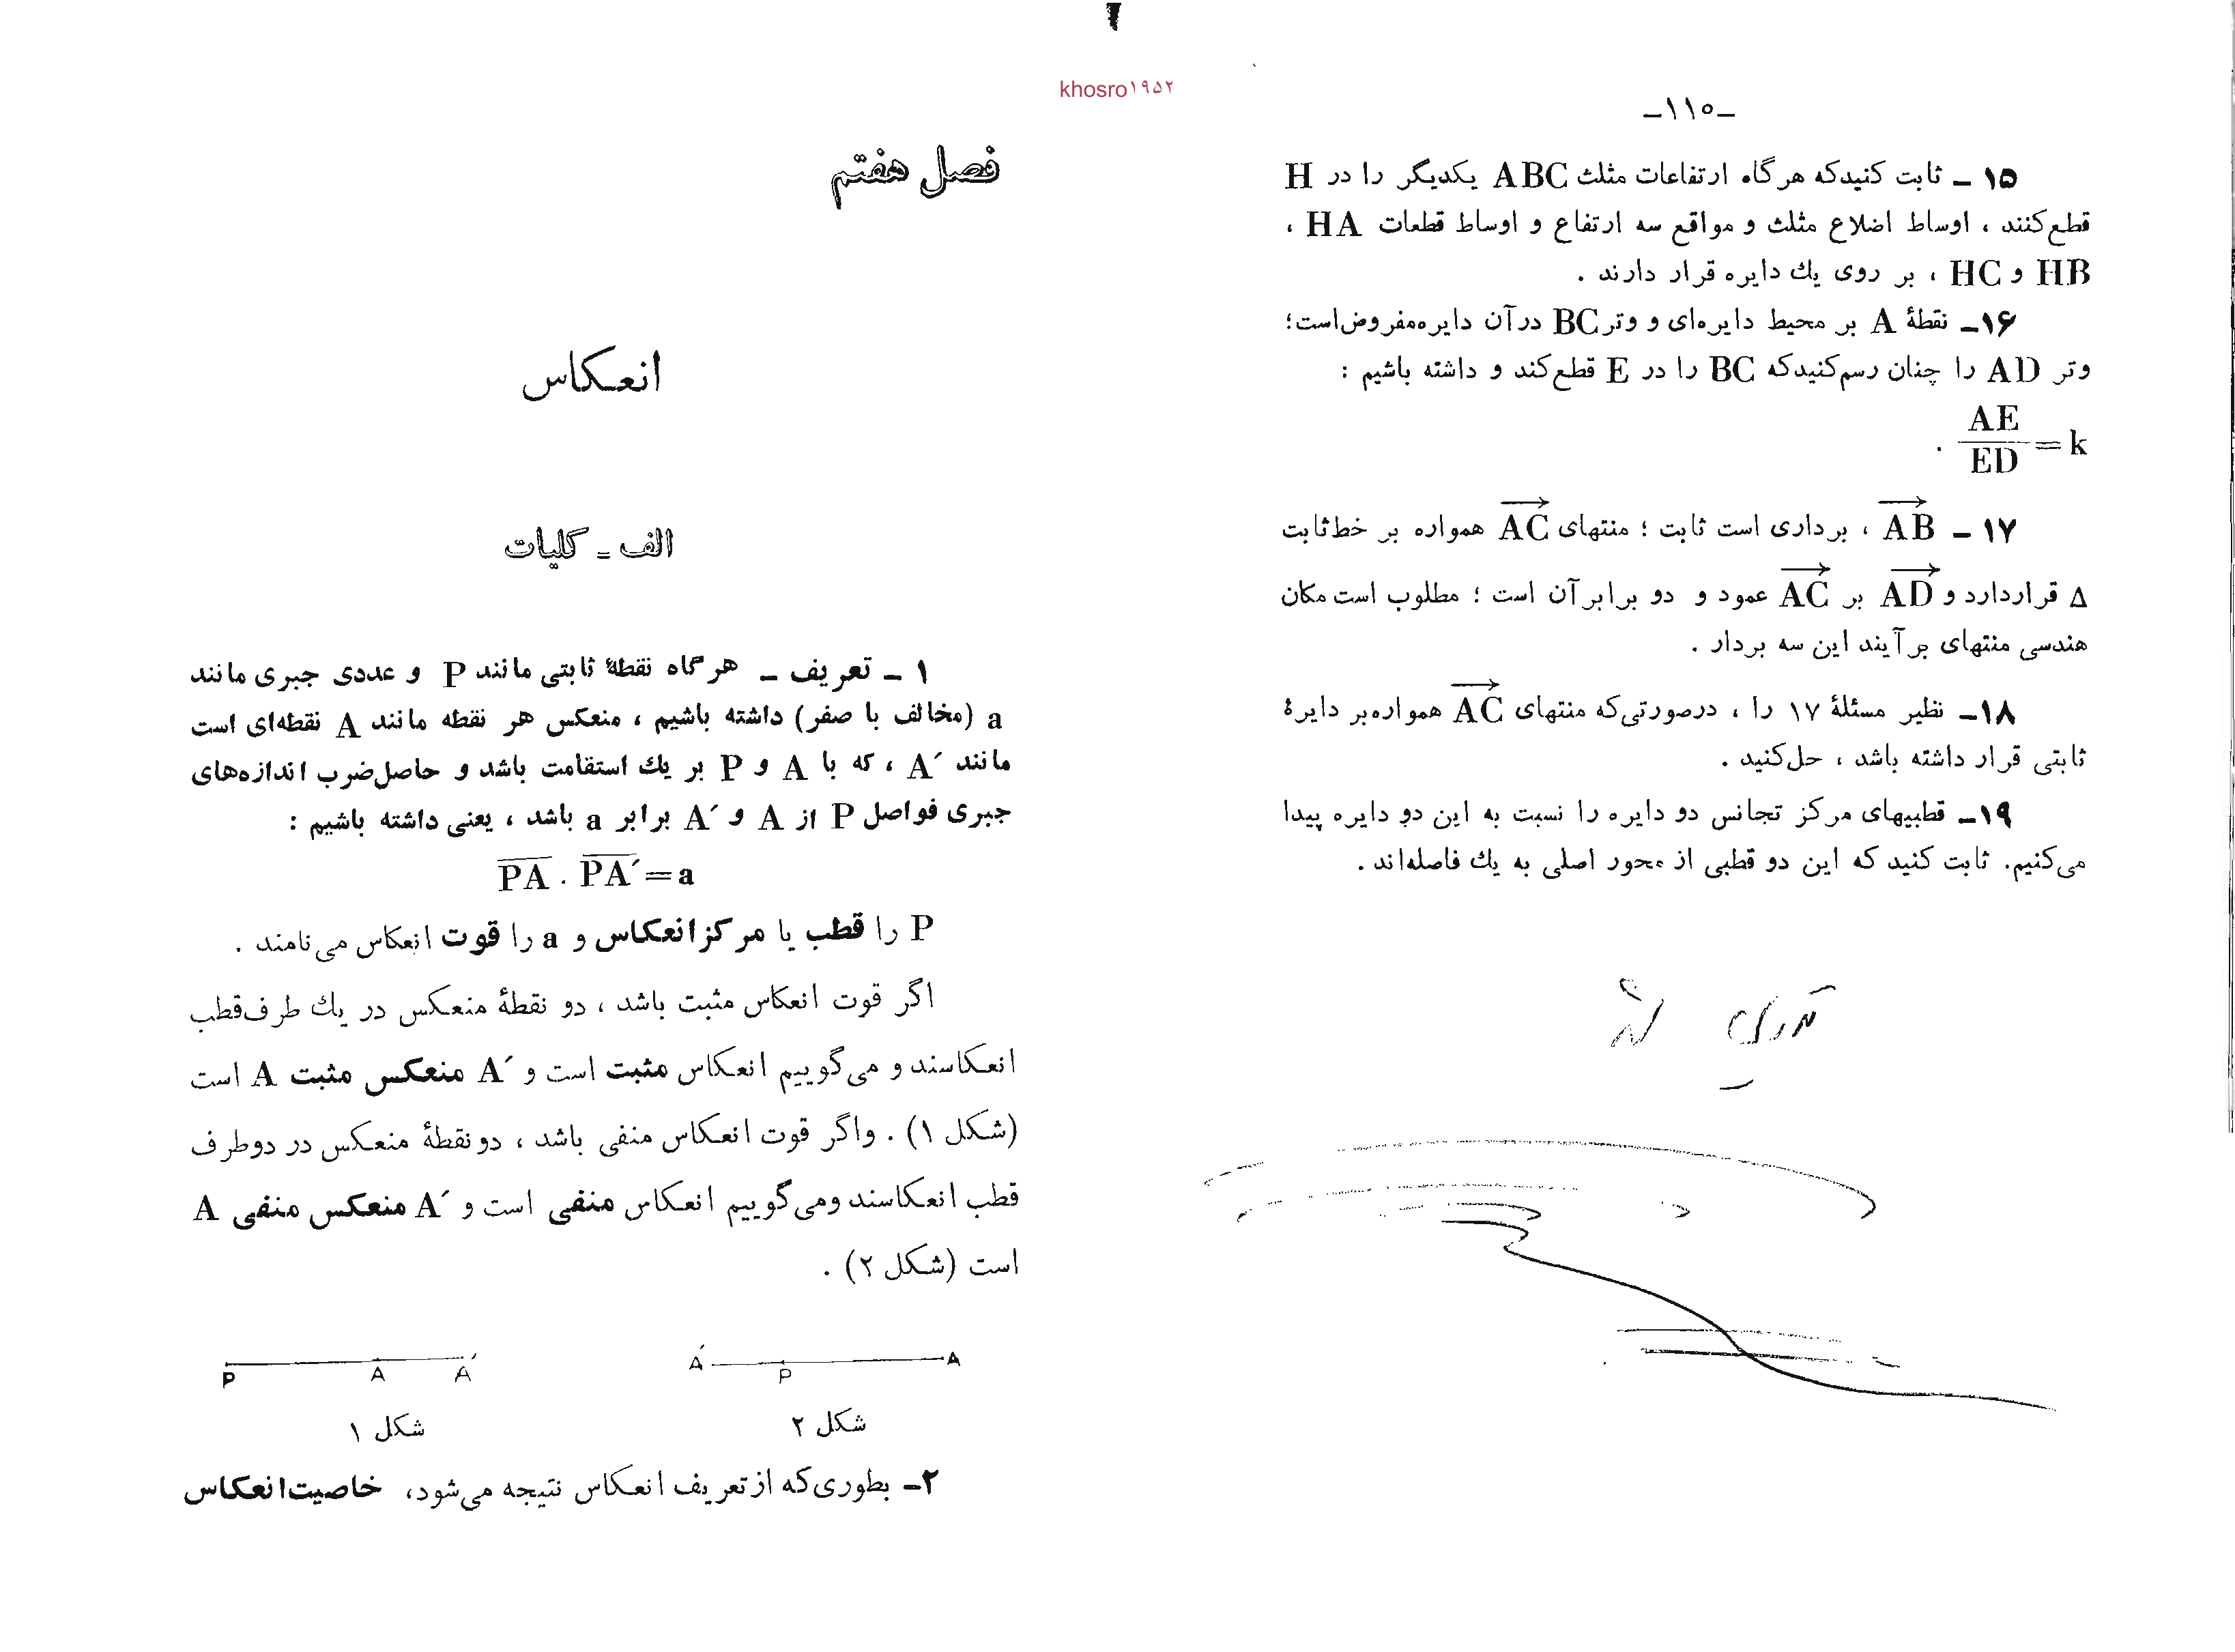 khosro۱۹۵۲
–۱۱۰–
۱۵ – ثابت کنیدکه هرگاه ارتفاعات مثلث ABC یکدیگر را در H
قطع‌کنند ، اوساط اضلاع مثلث و مواقع سه ارتفاع و اوساط قطعات HA ،
HB و HC ، بر روی یك دایره قرار دارند .
۱۶– نقطهٔ A بر محیط دایره‌ای و وتر BC در آن دایره‌مفروض‌است؛
وتر AD را چنان رسم‌کنیدکه BC را در E قطع‌کند و داشته باشیم :
AE/ED = k .
۱۷ – AB ، برداری است ثابت ؛ منتهای AC همواره بر خط‌ثابت
Δ قراردارد و AD بر AC عمود و دو برابر آن است ؛ مطلوب است مکان
هندسی منتهای برآیند این سه بردار .
۱۸– نظیر مسئلهٔ ۱۷ را ، درصورتی‌که منتهای AC همواره‌بر دایرهٔ
ثابتی قرار داشته باشد ، حل‌کنید .
۱۹– قطبیهای مرکز تجانس دو دایره را نسبت به این دو دایره پیدا
می‌کنیم. ثابت کنید که این دو قطبی از محور اصلی به یك فاصله‌اند .
فصل هفتم
انعکاس
الف – کلیات
۱ – تعریف – هرگاه نقطهٔ ثابتی مانند P و عددی جبری مانند
a (مخالف با صفر) داشته باشیم ، منعکس هر نقطه مانند A نقطه‌ای است
مانند A′ ، که با A و P بر یك استقامت باشد و حاصل‌ضرب اندازه‌های
جبری فواصل P از A و A′ برابر a باشد ، یعنی داشته باشیم :
PA . PA′ = a
P را قطب یا مرکزانعکاس و a را قوت انعکاس می‌نامند .
اگر قوت انعکاس مثبت باشد ، دو نقطهٔ منعکس در یك طرف‌قطب
انعکاسند و می‌گوییم انعکاس مثبت است و A′ منعکس مثبت A است
(شکل ۱) . واگر قوت انعکاس منفی باشد ، دونقطهٔ منعکس در دوطرف
قطب انعکاسند ومی‌گوییم انعکاس منفی است و A′ منعکس منفی A
است (شکل ۲) .
A′ P A
P A A′
شکل ۲
شکل ۱
۲– بطوری‌که ازتعریف انعکاس نتیجه می‌شود، خاصیت‌انعکاس